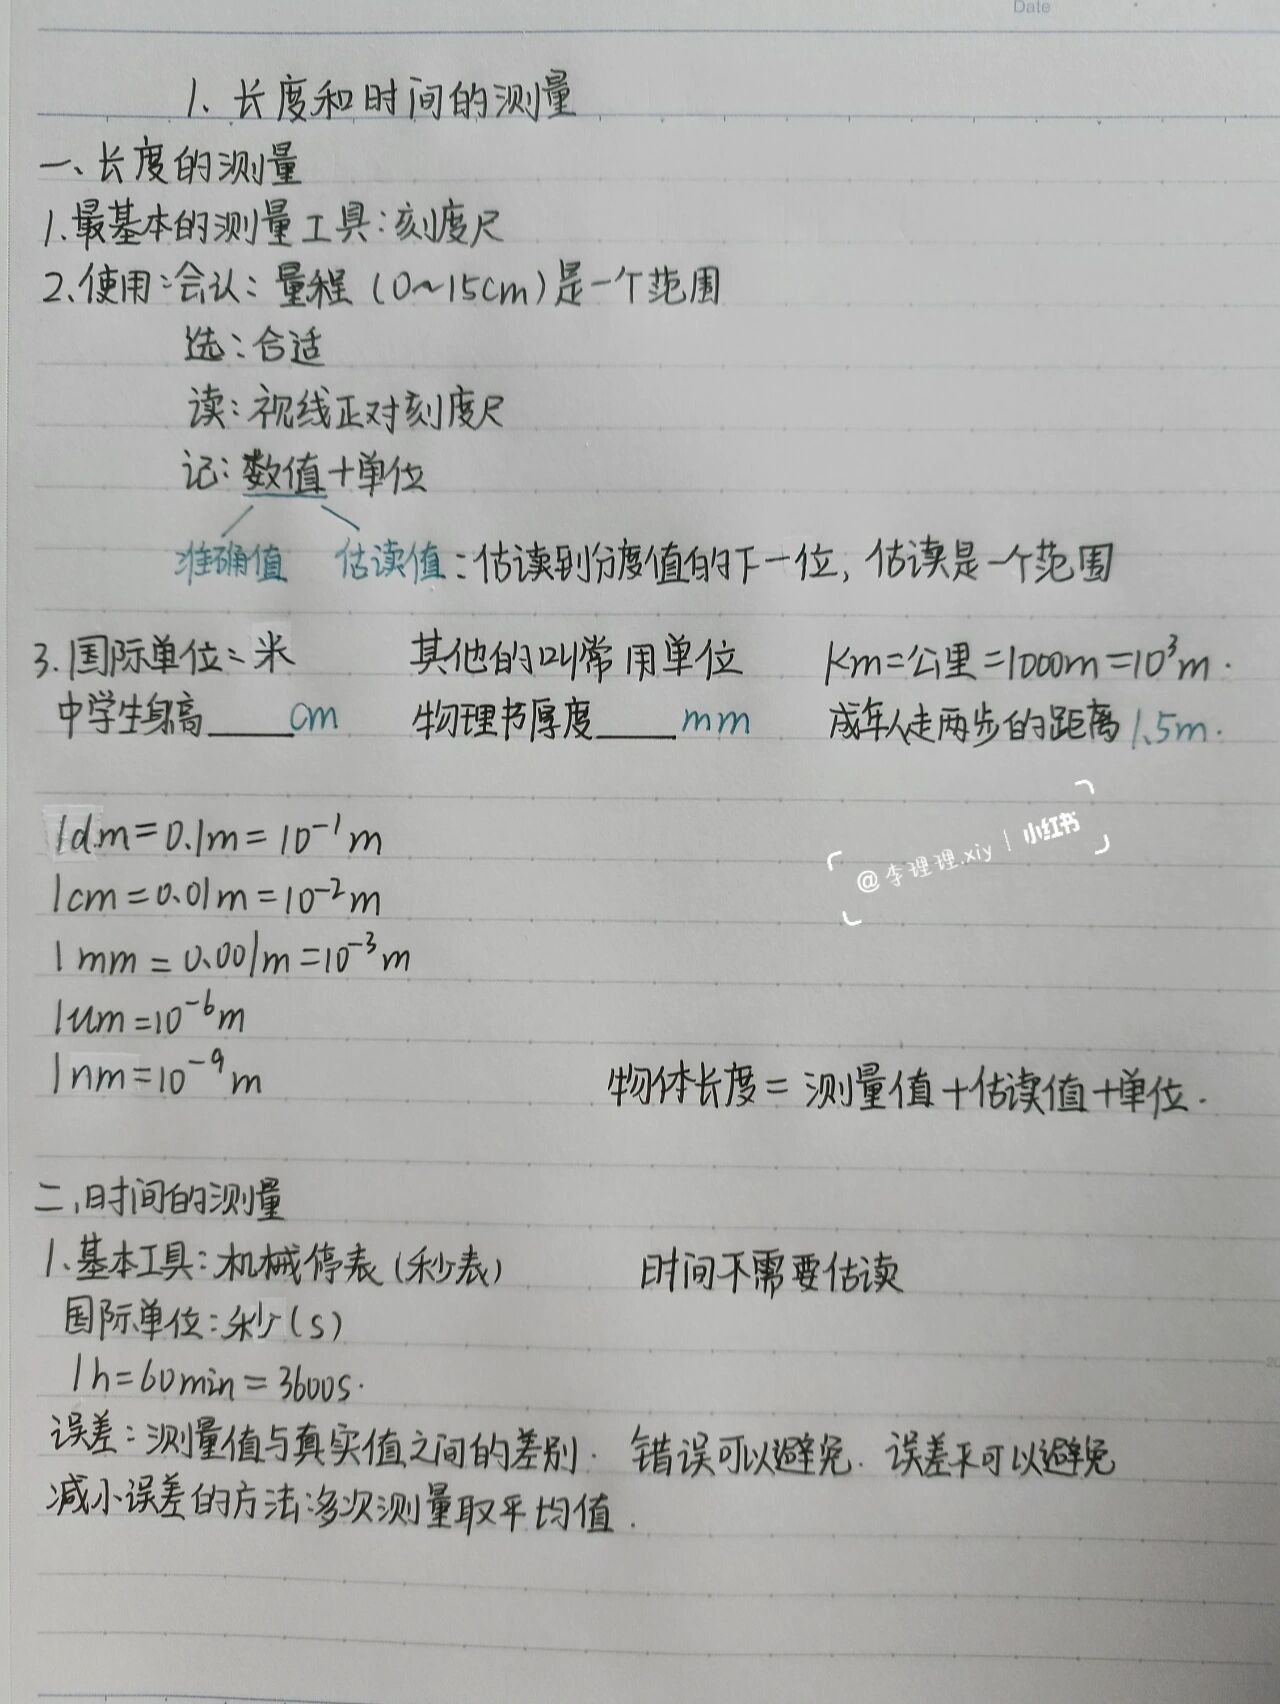 Date
1、长度和时间的测量
一、长度的测量
1.最基本的测量工具:刻度尺
2、使用:会认:量程(0~15cm)是一个范围
选:合适
读:视线正对刻度尺
记:数值+单位
准确值 估读值:估读到分度值的下一位,估读是一个范围
3.国际单位:米 其他的叫常用单位 Km=公里=1000m=10³m.
中学生身高____cm 物理书厚度____mm 成年人走两步的距离1.5m.
1dm=0.1m=10⁻¹m
@李理理.xiy | 小红书
1cm=0.01m=10⁻²m
1mm=0.001m=10⁻³m
1um=10⁻⁶m
1nm=10⁻⁹m
物体长度=测量值+估读值+单位.
二、时间的测量
1、基本工具:机械停表(秒表) 时间不需要估读
国际单位:秒(s)
1h=60min=3600s.
误差:测量值与真实值之间的差别. 错误可以避免. 误差不可以避免
减小误差的方法:多次测量取平均值.